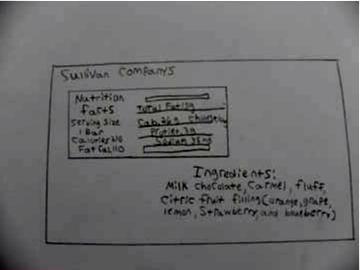 Sullivan Companys
Nutrition
facts
Serving Size
1 Bar
Calories 210
Fat Cal 110
Total Fat 13g
Protien 3g
Sodium 35mg
Ingredients:
Milk chocolate, Carmel, fluff,
Citric fruit filling (orange, grape,
lemon, Strawberry, and blueberry)